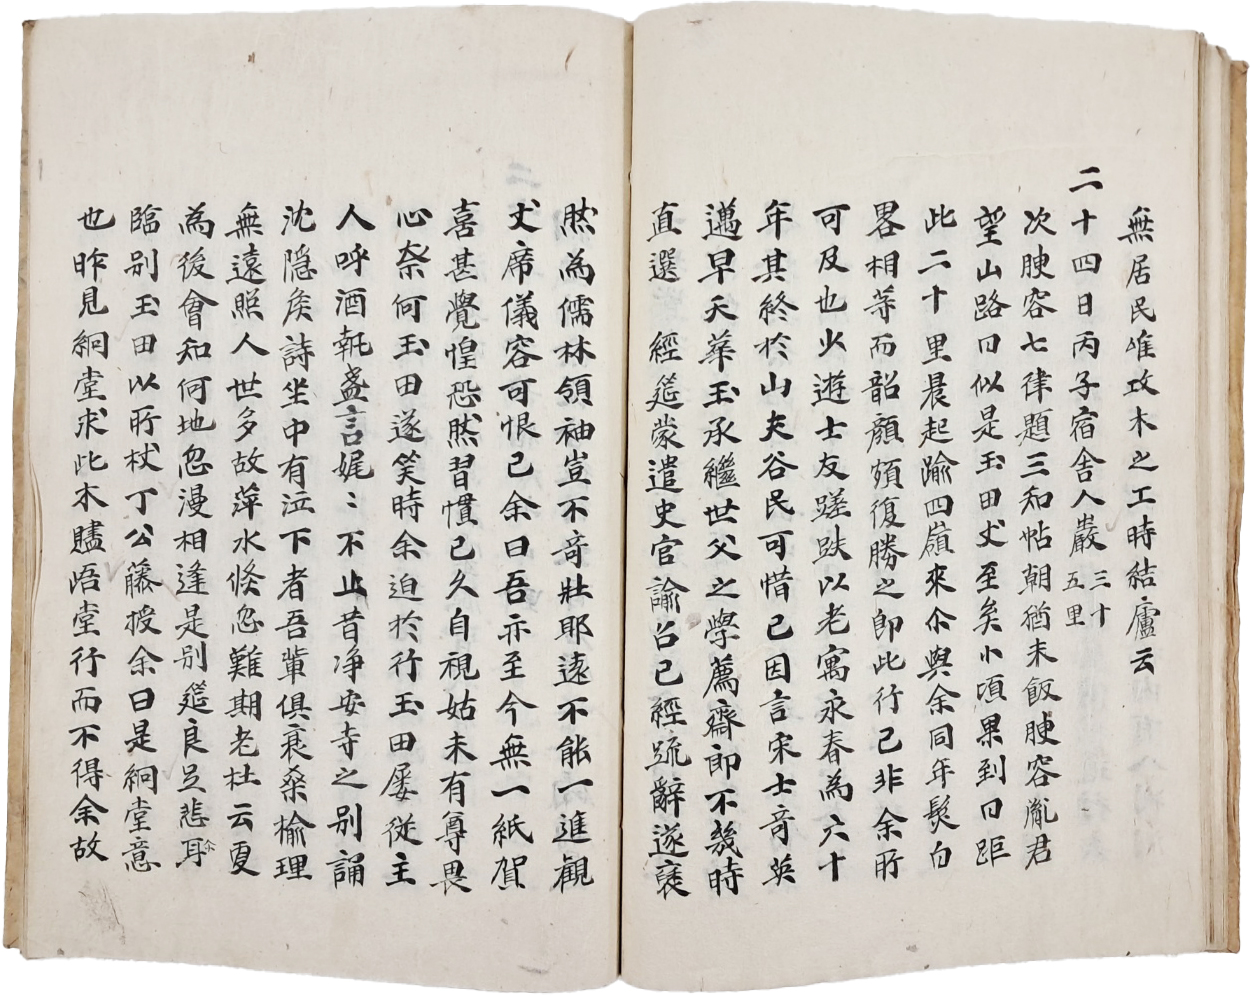 無居民唯攻木之工時結廬云
二十四日丙子宿舍人巖三十五里
次腴容七律題三知帖朝猶未飯腴容胤君
望山路曰似是玉田丈至矣小頃果到曰距
此二十里晨起踰四嶺來尒與余同年髮白
畧相等而韶顏頰復勝之即此行已非余所
可及也少遊士友蹉跌以老寓永春為六十
年其終於山夫谷民可惜已因言宋士奇英
邁早夭華玉承繼世父之學薦齋郎不幾時
直選 經筵蒙遣史官諭召已經疏辭遂褎
然為儒林領袖豈不奇壯耶遠不能一進觀
丈席儀容可恨已余曰吾亦至今無一紙賀
喜甚覺惶恐然習慣已久自視姑未有尊畏
心柰何玉田遂笑時余迫於行玉田屡從主
人呼酒執盞言娓〻不止昔净安寺之别誦
沈隱矦詩坐中有泣下者吾輩俱衰桑榆理
無遠照人世多故萍水倏忽難期老杜云更
為後會知何地忽漫相逢是别筵良足悲耳
臨别玉田以所杖丁公藤授余曰是絅堂意
也昨見絅堂求此木贐悟堂行而不得余故